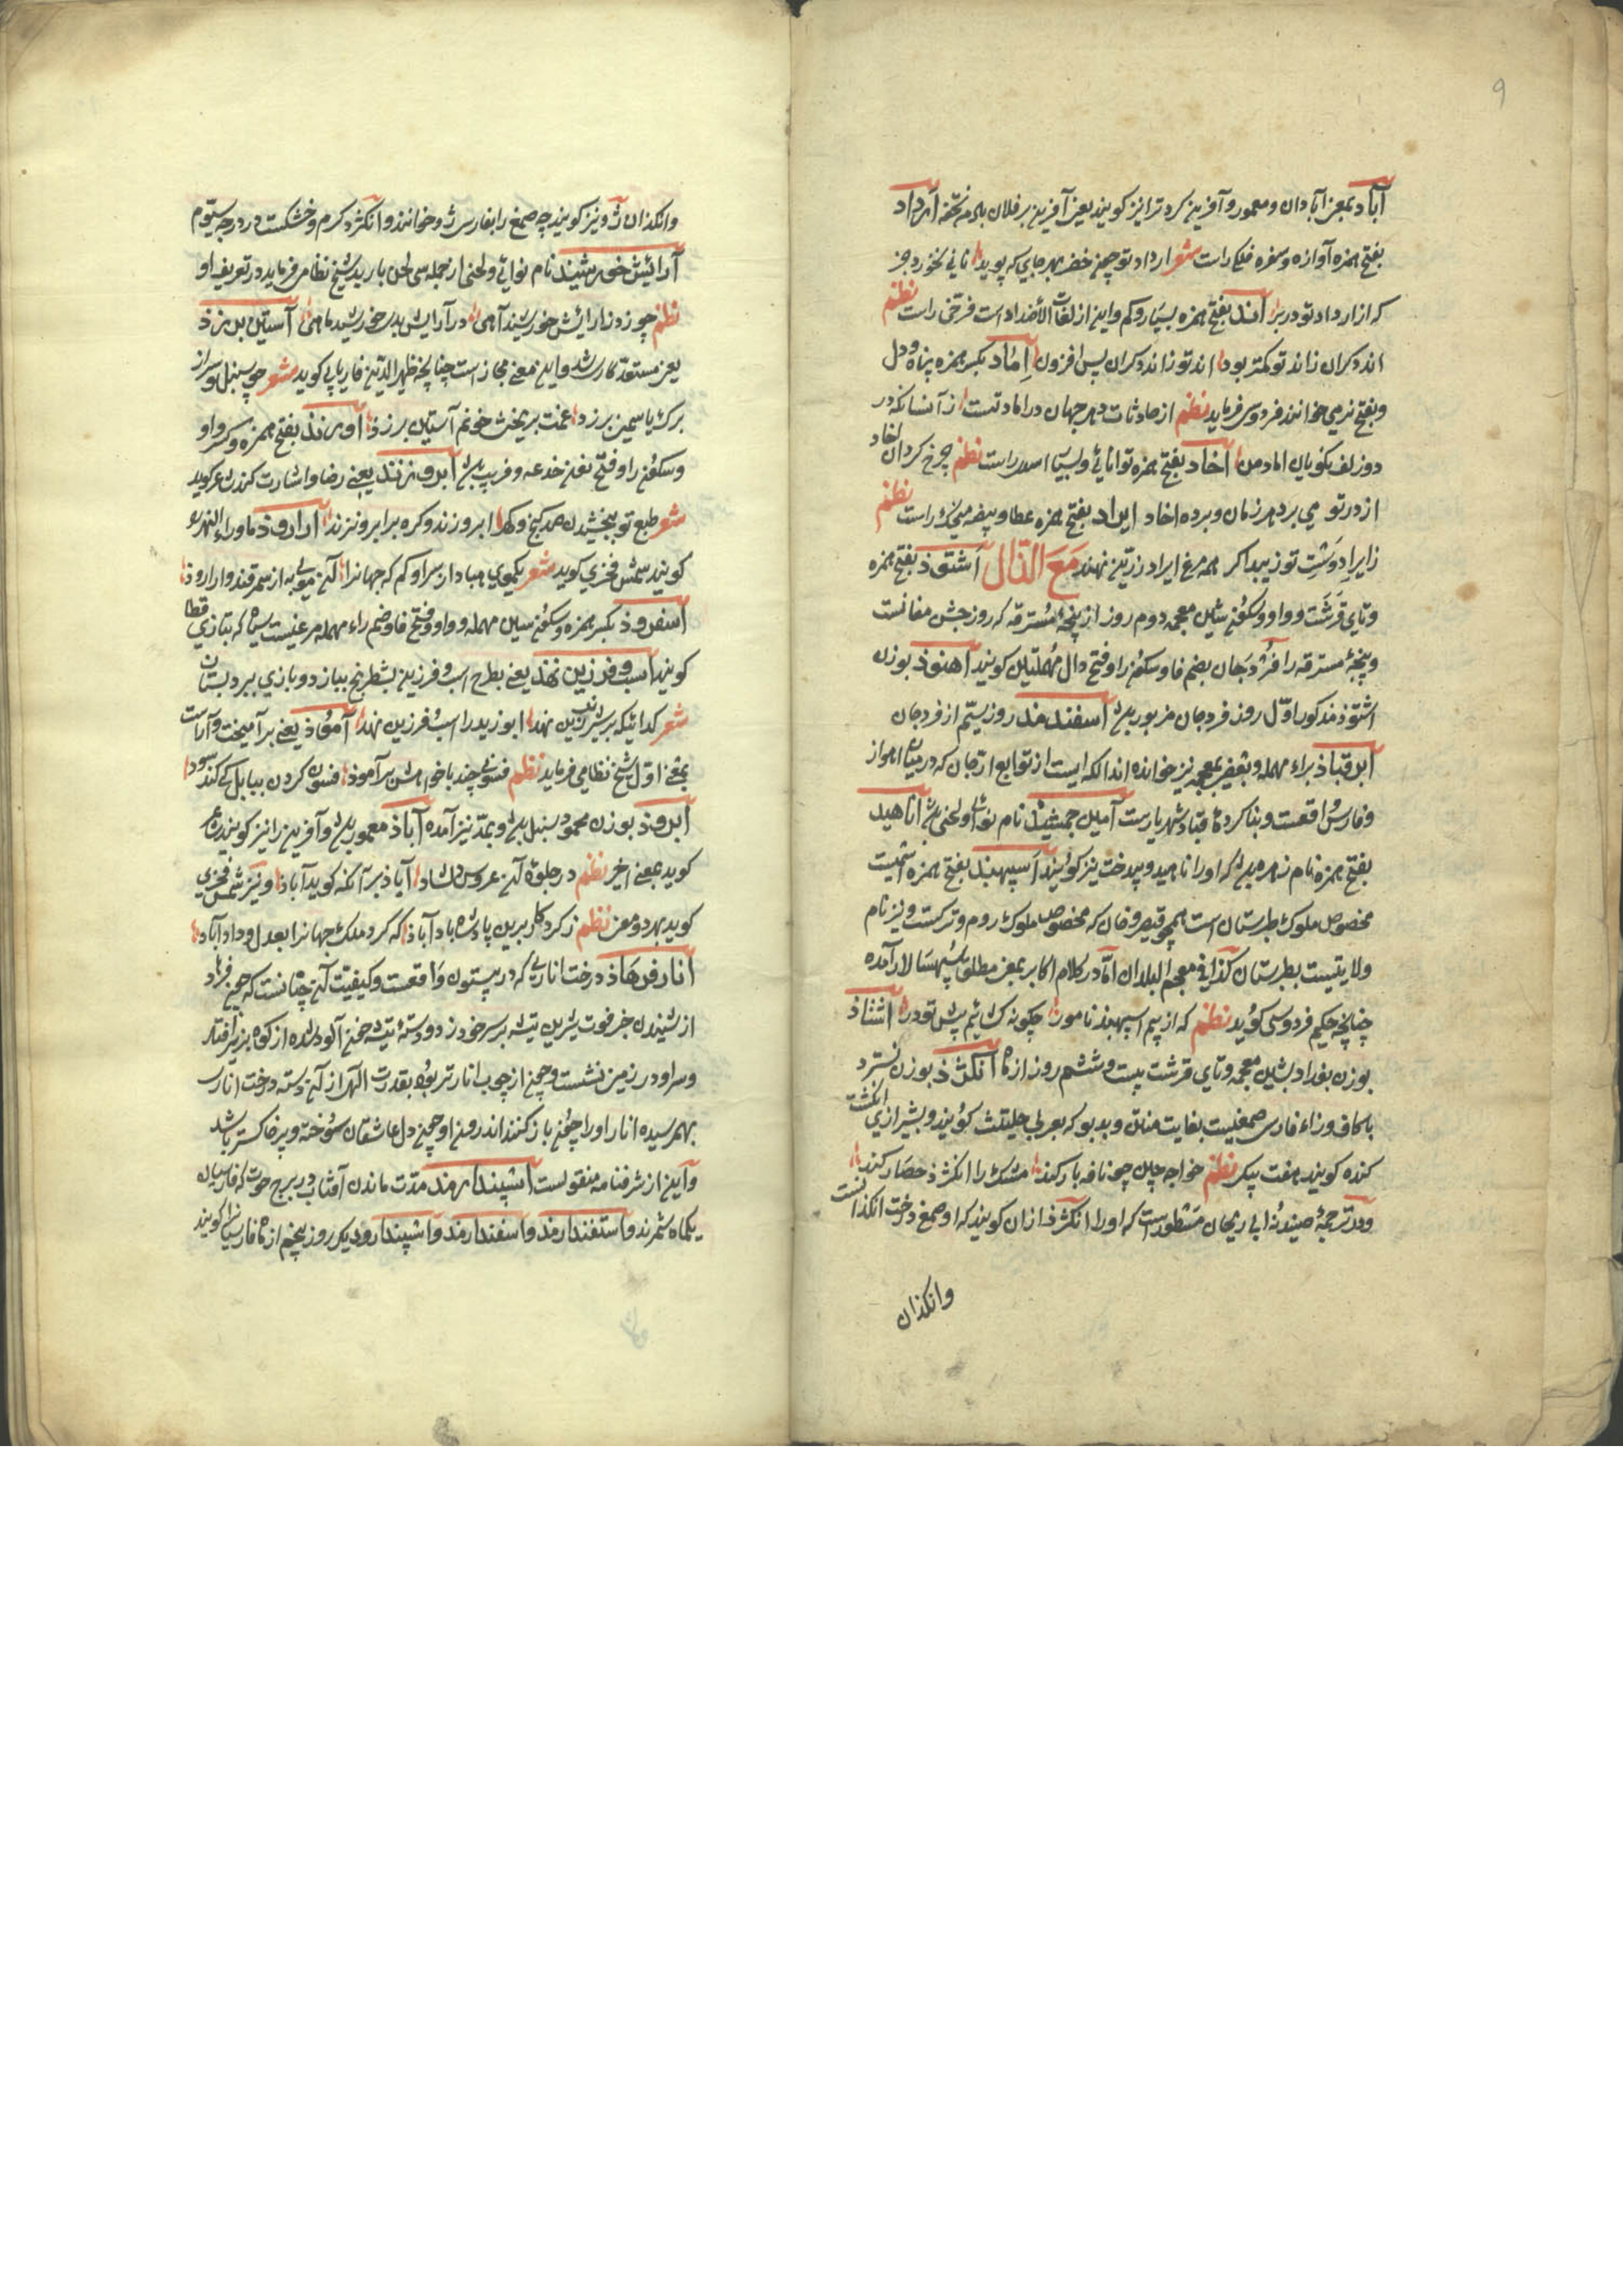 ۹
آباد بمعنی آبادان و معمور و آفرین کرد ترا نیز کویند یعنی آفرین بر فلان باد مر تحفه ارداد
بفتح همزه آوازه و سفره فلکی راست شعر ارداد تو چون خضر بهر جایی که پوید نانی نخورد جز
که از ارداد تو در بر اند بفتح همزه بسیار و کم و این از لغات الاضداد است فرخی راست نظم
اند دکران زاند تو کمتر بود اند تو زاند دکران پس افزون اماد بکسر همزه پناه و دل
و بفتح نیز می خوانند فردوسی فرماید نظم از حادثات دهر جهان در اماد تست از آنسانکه در
دو زلف نکویان اماد من اخاد بفتح همزه توانائی و لبیبا اسدی راست نظم چرخ کردان اخاد
از در تو می برد هر زمان و برده اخاد ایراد بفتح همزه عطا و بیضه مرغ راست نظم
ز ایراد دشت تو زیبد اکر همه مرغ ایراد زرین نهند مع الذال اشتوذ بفتح همزه
و تای قرشت و واو و سکون شین معجمه دوم روز از پنجهٔ مسترقه که روز جشن مغانست
و پنجهٔ مسترقه را فردجان بضم فا و سکون را و فتح دال مهملتین کویند اهنوذ بوزن
اشتوذ مذکور اول روز فردجان مزبور اسفندمذ روز سیّم از فردجان
ابرقباذ براء مهمله و بعضی بمعجمه نیز خوانده اند الکه ایست از توابع ارجان که در میان اهواز
و فارس واقعست و بنا کردهٔ قباد شهریارست آیین جمشیذ نام نوائی و لحنی اناهید
بفتح همزه نام زهره که او را ناهید و بیدخت نیز کویند اسپهبد بفتح همزه اسمیست
مخصوص ملوک طبرستان است همچو قیصر و خان که مخصوص ملوک روم و ترکست و نیز نام
ولایتیست بطبرستان کذا فی معجم البلدان امّا در کلام اکابر بمعنی مطلق سپهسالار آمده
چنانچه حکیم فردوسی کوید نظم که از بیم اسپهبد نامور چکونه کشائیم پیش تو در اشتاذ
بوزن بغداد بشین معجمه و تای قرشت بیست و ششم روز از ماه انکژذ بوزن نسترد
با کاف و زاء فارسی صمغیست بغایت منتن و بدبو که بعربی حلیتث کویند و بشیرازی انکشت
کنده کویند هفت پیکر نظم خواجه چین چو نافه بار کند مشک را انکژذ حصار کند
و در ترجمهٔ صیدنهٔ ابی ریحان مسطورست که او را انکژذ ازان کویند که او صمغ درخت انکذانست
وانکذان
وانکذان ژد نیز کویند چه صمغ را بفارسی ژد خوانند و انکژد کرم و خشکست در درجه سیّوم
آرایش خورشیذ نام نوائی و لحنی از جمله سی لحن باربد شیخ نظامی فرماید در تعریف او
نظم چو زد ز آرایش خورشید آهی در آرایش بدی خورشید ماهی آستین برزذ
یعنی مستعد کار شد و این معنی مجازاست چنانچه ظهیر الدین فاریابی کوید شعر چو سنبل تو سر از
برک یاسمین برزد غمت بریختن خونم آستین برزد اورنذ بفتح همزه و کسر واو
و سکون را و فتح نون خدعه و فریب ابرو زند یعنی رضا و اشارت کند کوید
شعر طبع تو ببخشیدن صد کنج و کهر ابرو زند و کره بر ابرو نزند ارارود ماوراء النهر
کویند شمس فخری کوید شعر یکموی مبادا ز سر او کم که جهانرا آن موی به از سمرقند و ارارود
اسفروذ بکسر همزه و سکون سین مهمله و واو و فتح فا و ضم راء مهمله مرغیست سیاه که بتازی قطا
کویند اسپ و فرزین نهذ یعنی بطرح اسپ و فرزین بشطرنج ببازد و بازی ببرد
شعر کدائیکه بر شیر زین نهد ابو زید را اسپ و فرزین نهد آموذ یعنی بر آمیخت و آراست
بمعنی اوّل شیخ نظامی فرماید نظم فسونی چند با خواهش برآموذ فسون کردن ببابل کی کند سود
ابروذ بوزن محمود سنبل و بمدّ نیز آمده آباذ معمور و آفرین را نیز کویند
کوید بمعنی اخیر نظم در جلوهٔ آن عروس دلشاد آباذ بر آنکه کوید آباذ و نیز شمس فخری
کوید بهر دو معنی نظم ز کردکار برین پادشاه باد آباذ که کرد ملک جهانرا بعدل و داد آباد
انار فرهاذ درخت اناری که در بیستون واقعست و کیفیت آن چنانست که چون فرهاد
از شنیدن خبر فوت شیرین تیشه بر سر خود زد و دستهٔ تیشه خون آلود شده از کوه بزیر افتاد
و سر او در زمین نشست و چون از چوب انار تر بود بقدرت الهی از آن دسته درخت اناری
بهم رسیده انار او را چون باز کنند اندرون او چون دل عاشقان سوخته و پر خاکستر باشد
و این از شرفنامه منقولست اسپندارمذ مدّت ماندن آفتاب در برج حوت که فارسیان
یکماه شمرند و استفندارمذ و اسفندارمذ و اشپندارود یکی روز پنجم از ماه فارسیان کویند